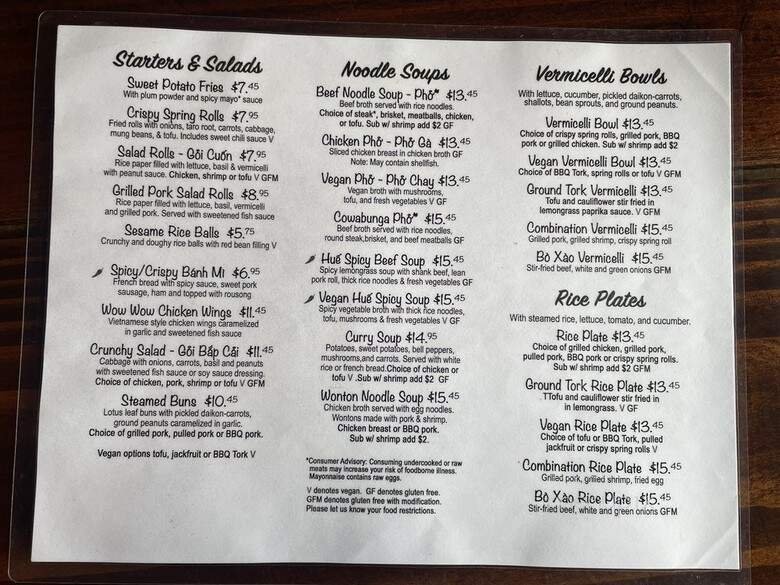 Starters & Salads
Sweet Potato Fries $7.45
With plum powder and spicy mayo* sauce
Crispy Spring Rolls $7.95
Fried rolls with onions, taro root, carrots, cabbage,
mung beans, & tofu. Includes sweet chili sauce V
Salad Rolls - Gỏi Cuốn $7.95
Rice paper filled with lettuce, basil & vermicelli
with peanut sauce. Chicken, shrimp or tofu V GFM
Grilled Pork Salad Rolls $8.95
Rice paper filled with lettuce, basil, vermicelli
and grilled pork. Served with sweetened fish sauce
Sesame Rice Balls $5.75
Crunchy and doughy rice balls with red bean filling V
Spicy/Crispy Bánh Mì $6.95
French bread with spicy sauce, sweet pork
sausage, ham and topped with rousong
Wow Wow Chicken Wings $11.45
Vietnamese style chicken wings caramelized
in garlic and sweetened fish sauce
Crunchy Salad - Gỏi Bắp Cải $11.45
Cabbage with onions, carrots, basil and peanuts
with sweetened fish sauce or soy sauce dressing.
Choice of chicken, pork, shrimp or tofu V GFM
Steamed Buns $10.45
Lotus leaf buns with pickled daikon-carrots,
ground peanuts caramelized in garlic.
Choice of grilled pork, pulled pork or BBQ pork.
Vegan options tofu, jackfruit or BBQ Tork V
Noodle Soups
Beef Noodle Soup - Phở* $13.45
Beef broth served with rice noodles.
Choice of steak*, brisket, meatballs, chicken,
or tofu. Sub w/ shrimp add $2 GF
Chicken Phở - Phở Gà $13.45
Sliced chicken breast in chicken broth GF
Note: May contain shellfish.
Vegan Phở - Phở Chay $13.45
Vegan broth with mushrooms,
tofu, and fresh vegetables V GF
Cowabunga Phở* $15.45
Beef broth served with rice noodles,
round steak,brisket, and beef meatballs GF
Huế Spicy Beef Soup $15.45
Spicy lemongrass soup with shank beef, lean
pork roll, thick rice noodles & fresh vegetables GF
Vegan Huế Spicy Soup $15.45
Spicy vegetable broth with thick rice noodles,
tofu, mushrooms & fresh vegetables V GF
Curry Soup $14.95
Potatoes, sweet potatoes, bell peppers,
mushrooms,and carrots. Served with white
rice or french bread.Choice of chicken or
tofu V .Sub w/ shrimp add $2 GF
Wonton Noodle Soup $15.45
Chicken broth served with egg noodles.
Wontons made with pork & shrimp.
Chicken breast or BBQ pork.
Sub w/ shrimp add $2.
*Consumer Advisory: Consuming undercooked or raw
meats may increase your risk of foodborne illness.
Mayonnaise contains raw eggs.
V denotes vegan. GF denotes gluten free.
GFM denotes gluten free with modification.
Please let us know your food restrictions.
Vermicelli Bowls
With lettuce, cucumber, pickled daikon-carrots,
shallots, bean sprouts, and ground peanuts.
Vermicelli Bowl $13.45
Choice of crispy spring rolls, grilled pork, BBQ
pork or grilled chicken. Sub w/ shrimp add $2
Vegan Vermicelli Bowl $13.45
Choice of BBQ Tork, spring rolls or tofu V GFM
Ground Tork Vermicelli $13.45
Tofu and cauliflower stir fried in
lemongrass paprika sauce. V GFM
Combination Vermicelli $15.45
Grilled pork, grilled shrimp, crispy spring roll
Bò Xào Vermicelli $15.45
Stir-fried beef, white and green onions GFM
Rice Plates
With steamed rice, lettuce, tomato, and cucumber.
Rice Plate $13.45
Choice of grilled chicken, grilled pork,
pulled pork, BBQ pork or crispy spring rolls.
Sub w/ shrimp add $2 GFM
Ground Tork Rice Plate $13.45
TTofu and cauliflower stir fried in
in lemongrass. V GF
Vegan Rice Plate $13.45
Choice of tofu or BBQ Tork, pulled
jackfruit or crispy spring rolls V
Combination Rice Plate $15.45
Grilled pork, grilled shrimp, fried egg
Bò Xào Rice Plate $15.45
Stir-fried beef, white and green onions GFM